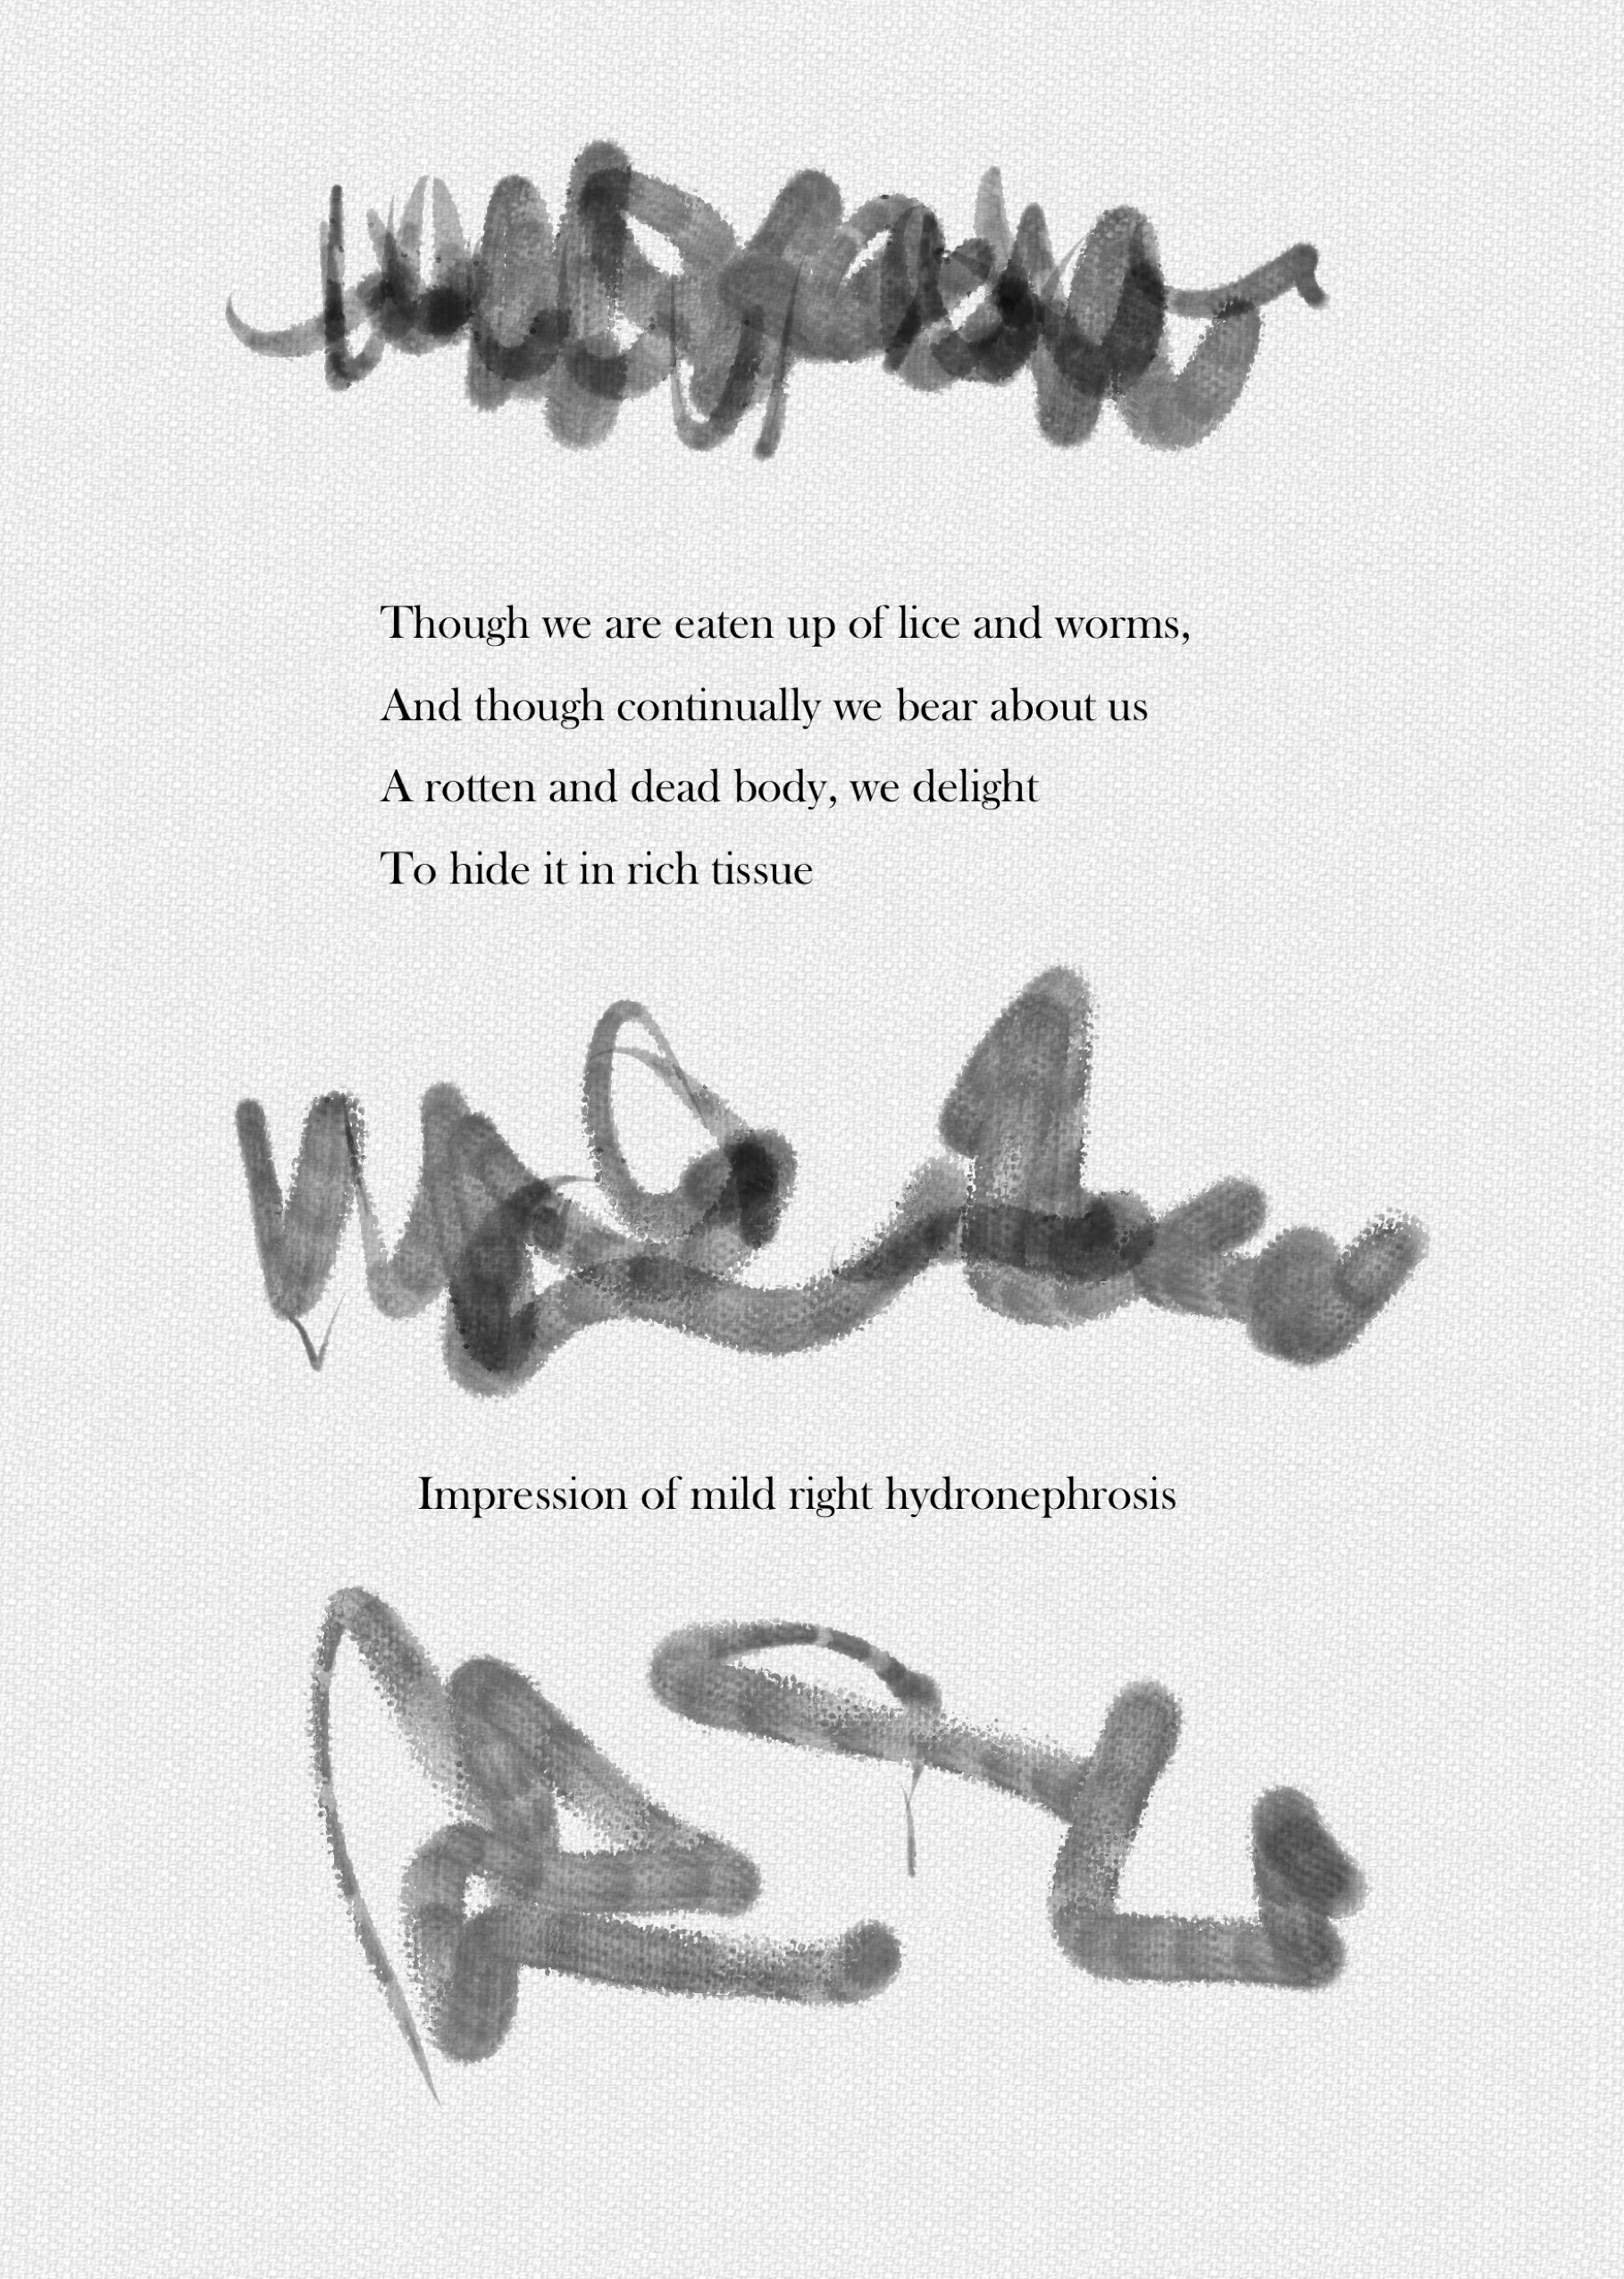 Though we are eaten up of lice and worms,
And though continually we bear about us
A rotten and dead body, we delight
To hide it in rich tissue
Impression of mild right hydronephrosis